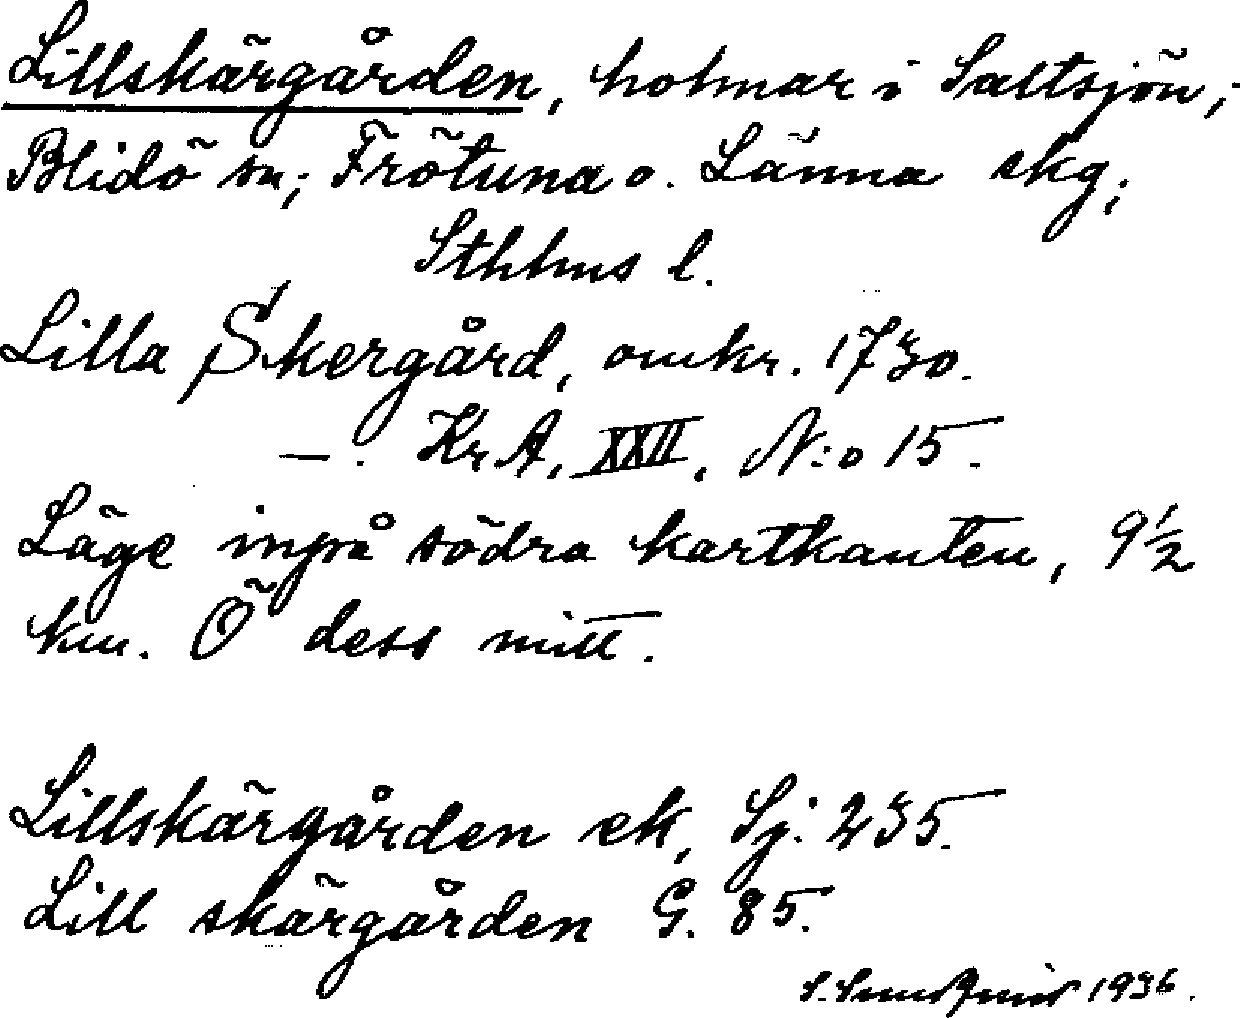 Lillskärgården, holmar i Saltsjön,
Blidö sn; Frötuna o. Länna skg;
Sthlms l.
Lilla Skergård, omkr. 1730.
—. KrA, XXII, N:o 15.
Läge inpå södra kartkanten, 9½
km. Ö dess mitt.
Lillskärgården ek, Sj: 235.
Lill skärgården G. 85.
S. Sundqvist 1936.